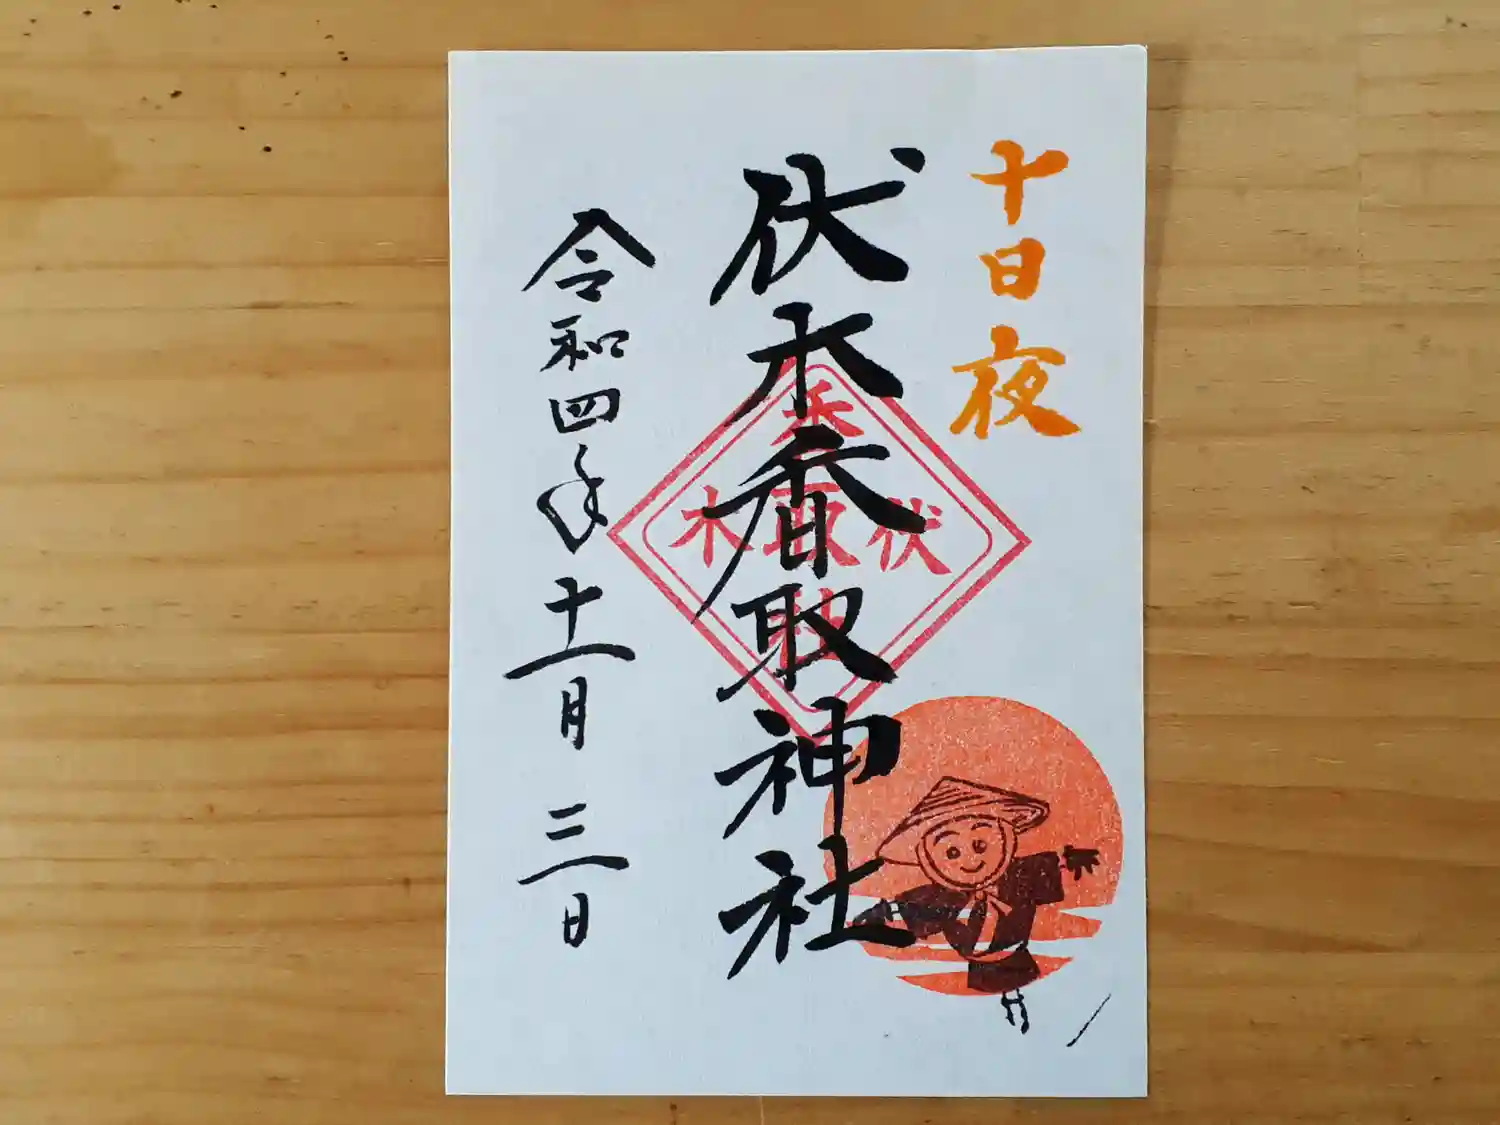 十日夜
伏木香取神社
令和四年十一月三日
伏木
香取